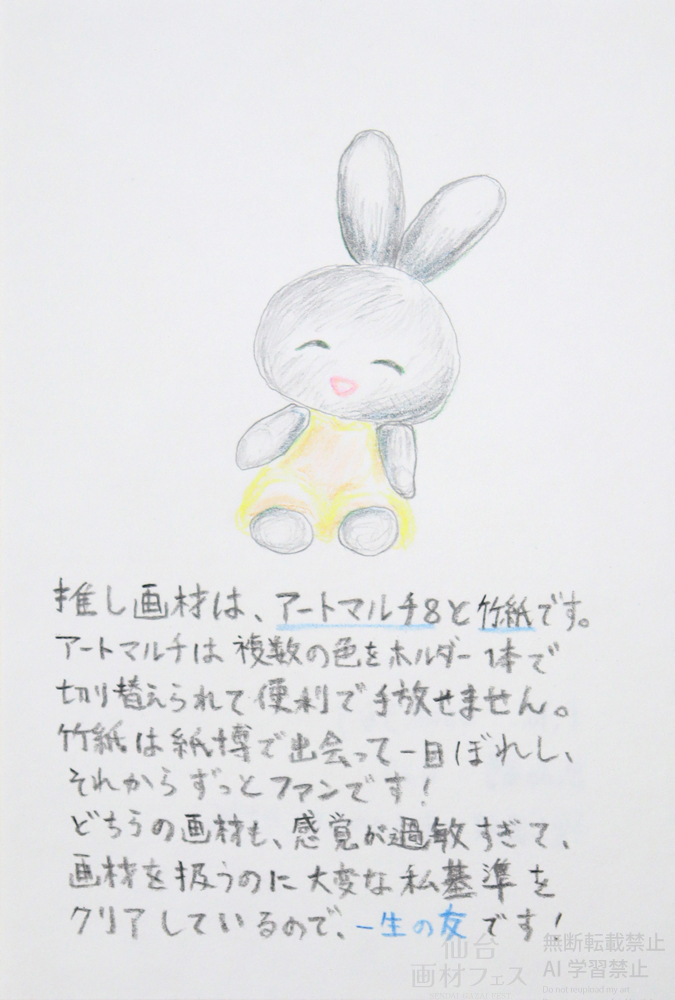 推し画材は、アートマルチ8と竹紙です。
アートマルチは複数の色をホルダー1本で
切り替えられて便利で手放せません。
竹紙は紙博で出会って一目ぼれし、
それからずっとファンです！
どちらの画材も、感覚が過敏すぎて、
画材を扱うのに大変な私基準を
クリアしているので、一生の友です！
仙台
画材フェス
無断転載禁止
AI 学習禁止
Do not reupload my art